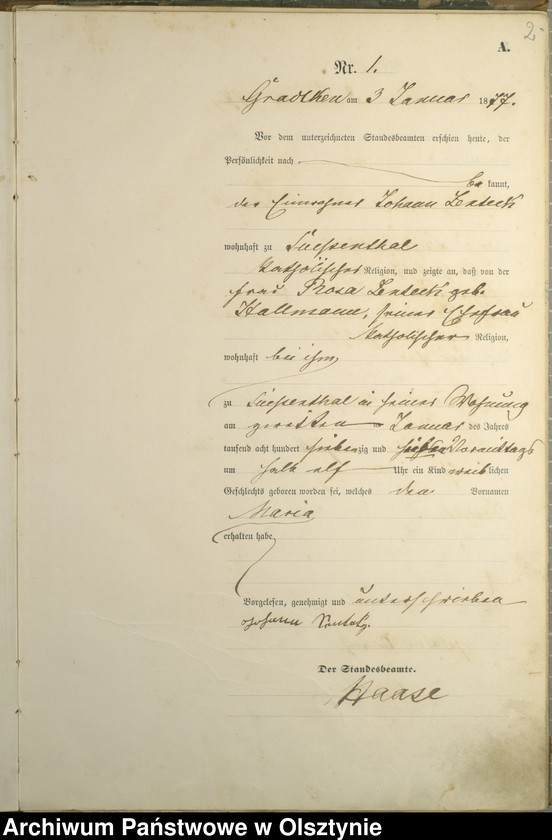 2
A.
Nr. 1.
Gradtken am 3 Januar 1877.
Vor dem unterzeichneten Standesbeamten erschien heute, der
Persönlichkeit nach
be kannt,
der Einwohner Johann
wohnhaft zu
katholischer Religion, und zeigte an, daß von der
Frau Rosa geb.
Hallmann, seiner Ehefrau
katholischer Religion,
wohnhaft bei ihm
zu in seiner Wohnung
am zweiten Januar des Jahres
tausend acht hundert siebenzig und sieben Vormittags
um halb elf Uhr ein Kind weiblichen
Geschlechts geboren worden sei, welches den Vornamen
Maria
erhalten habe.
Vorgelesen, genehmigt und unterschrieben
Johann
Der Standesbeamte.
Haase
Archiwum Państwowe w Olsztynie